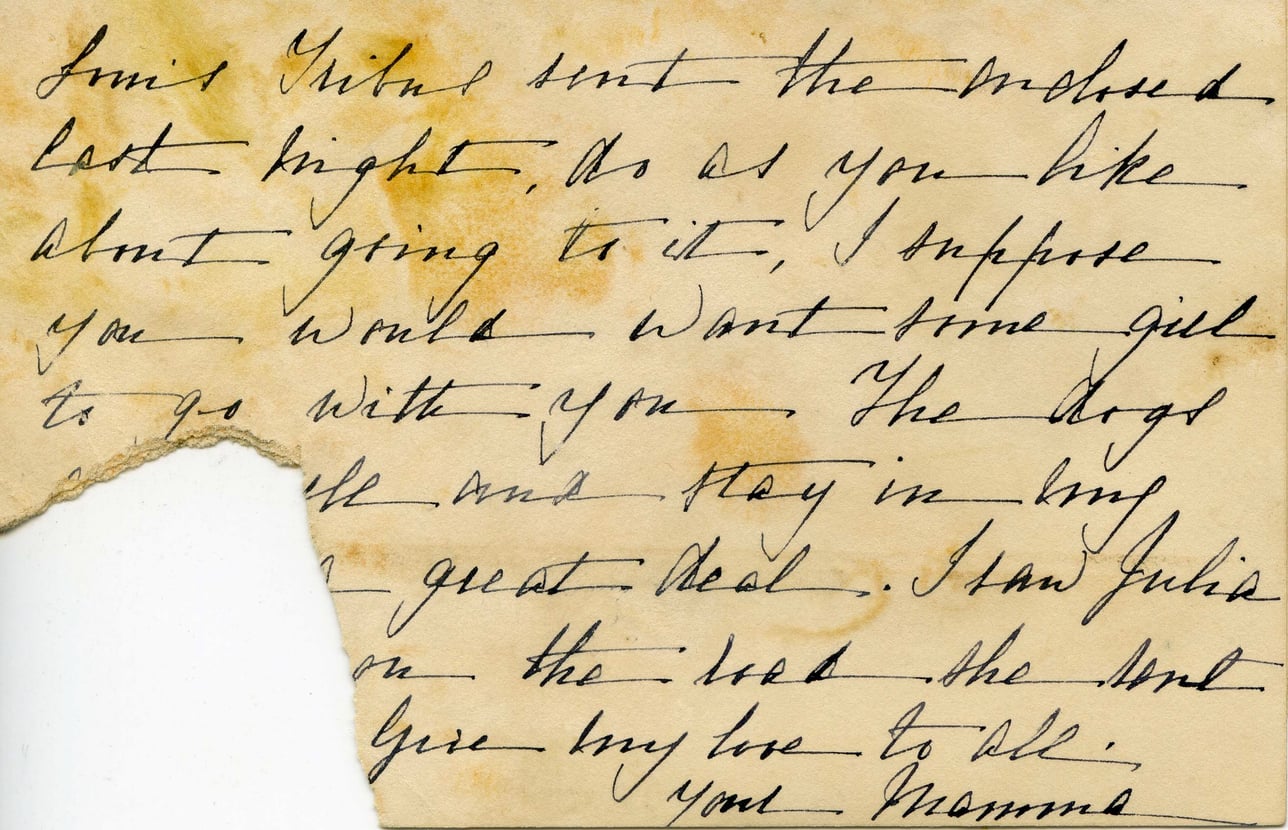 Louis Tribus sent the enclosed
last night, do as you like
about going to it, I suppose
you would want some girl
to go with you The dogs
and stay in my
great deal. I saw Julia
on the road she sent
Give my love to all.
Your Mamma